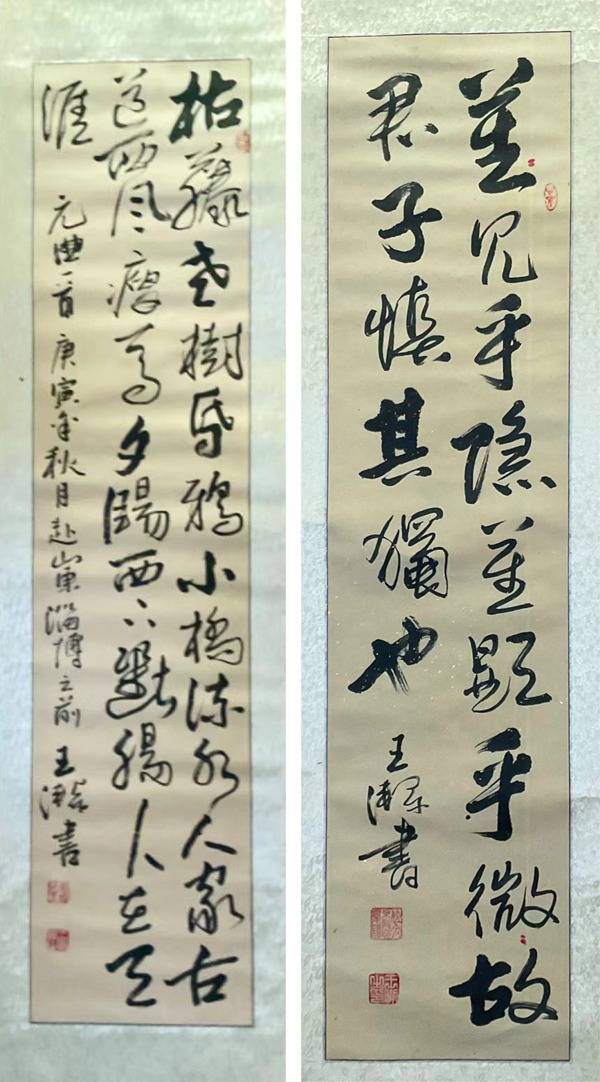 枯藤老樹昏鴉小橋流水人家古
道西風瘦馬夕陽西下斷腸人在天
涯 元曲一首 庚寅年秋月赴山東淄博之前 王 書
莫見乎隐莫顯乎微故
君子慎其獨也 王 書